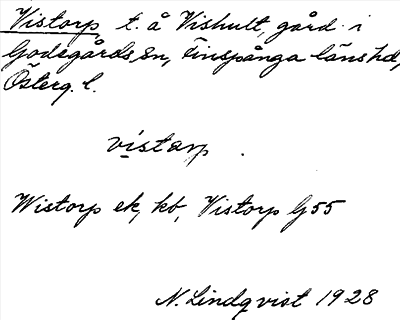 Vistorp t. å Vishult, gård i
Godegårds sn, Finspånga länshd,
Österg. l.
vístarp .
Wistorp ek, kb, Vistorp G55
N. Lindqvist 1928